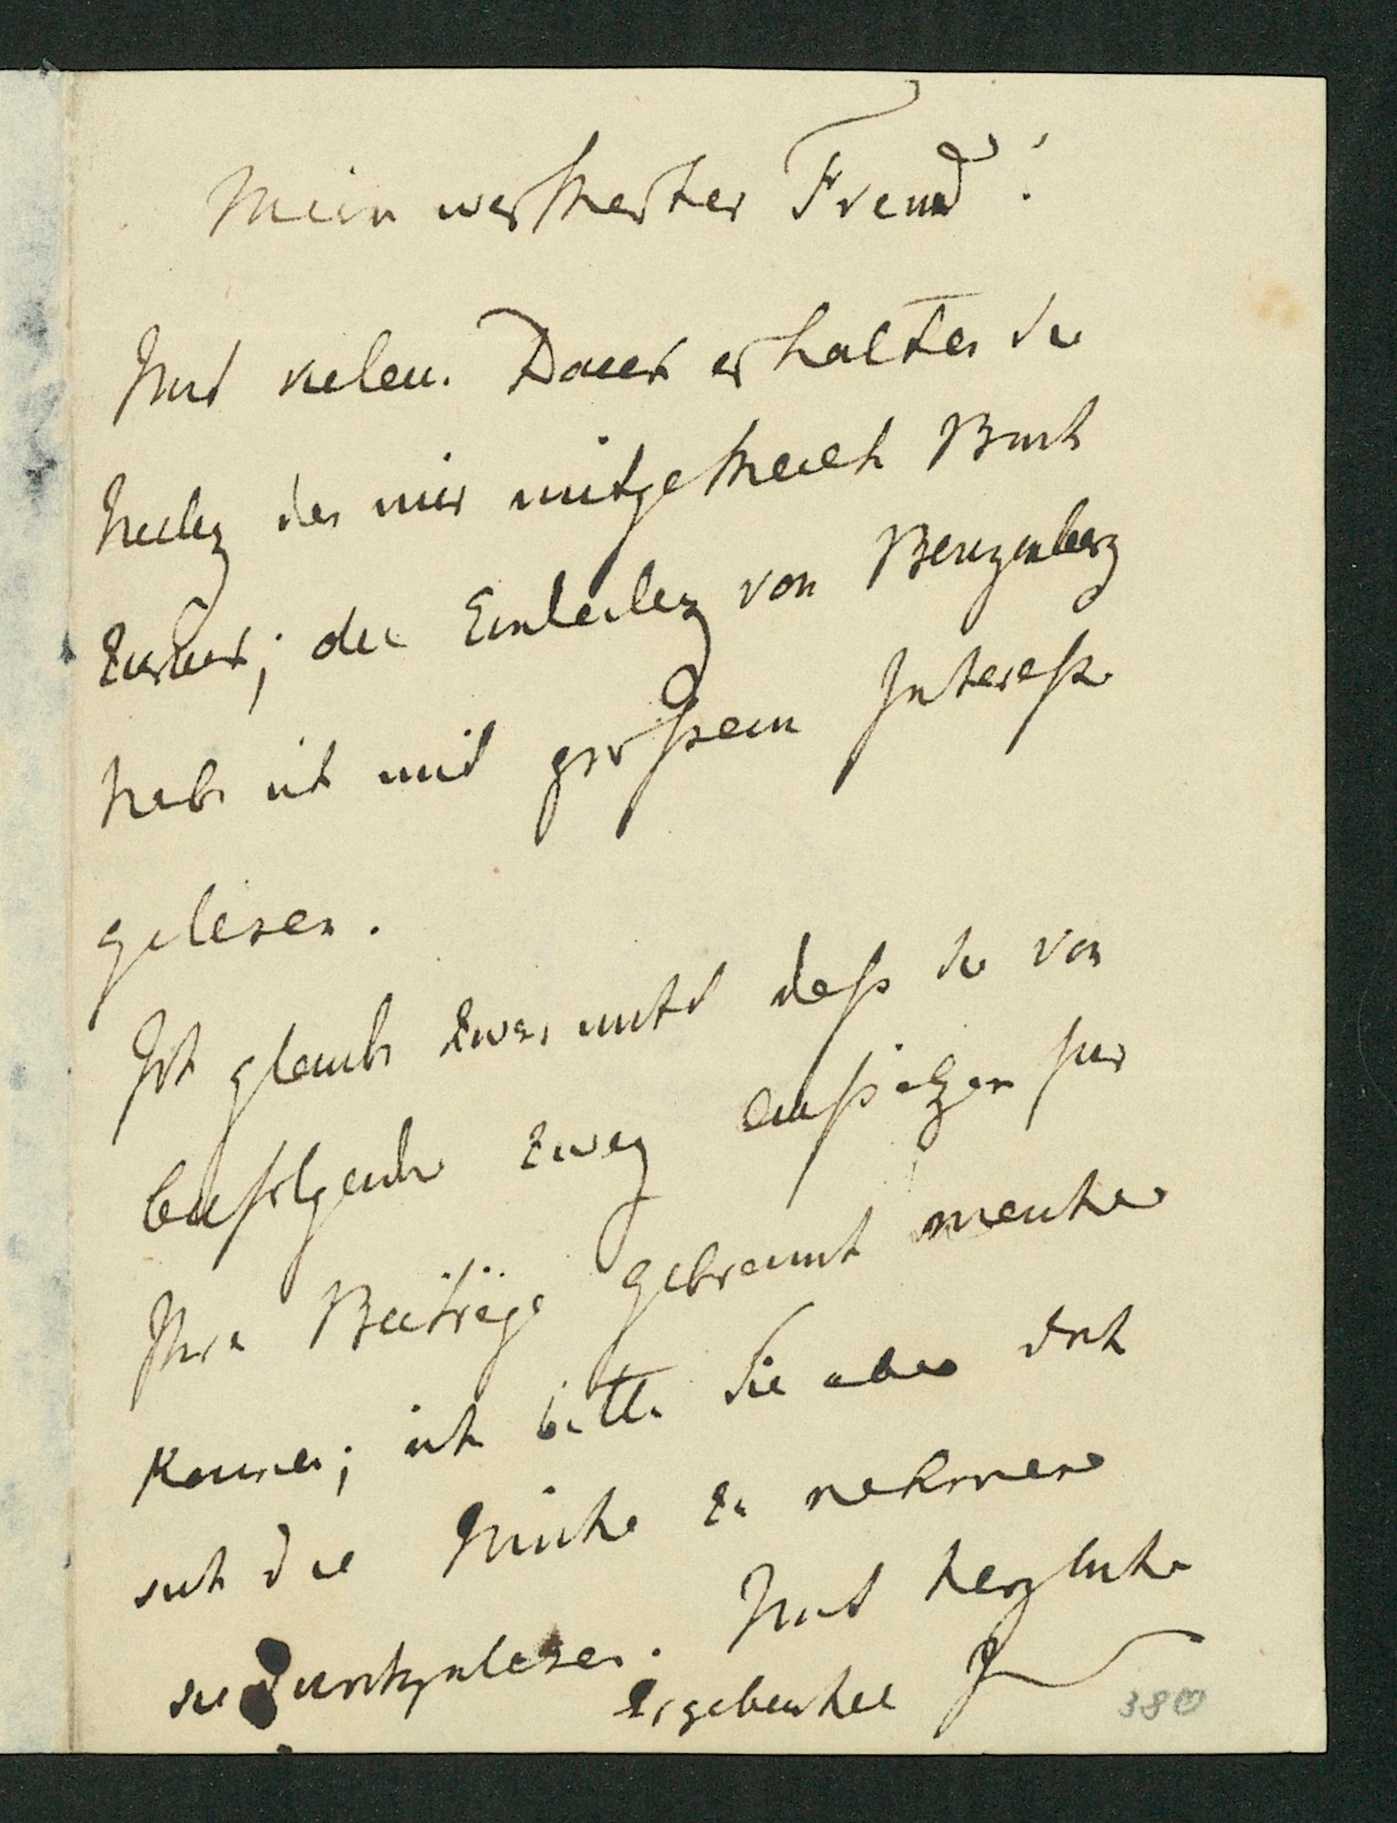 Mein werthester Freund!
Mit vielem Dank erhalten Sie
hierbey das mir mitgetheilte Buch
zurück; die Einleitung von Benzenberg
habe ich mit großem Interesse
gelesen.
Ich glaube zwar nicht daß Sie von
beifolgende zwey Aufsätzen für
Ihre Beiträge Gebrauch machen
können; ich bitte Sie aber doch
sich die Mühe zu nehmen
sie durchzulesen. Mit herzlicher
Ergebenheit
380